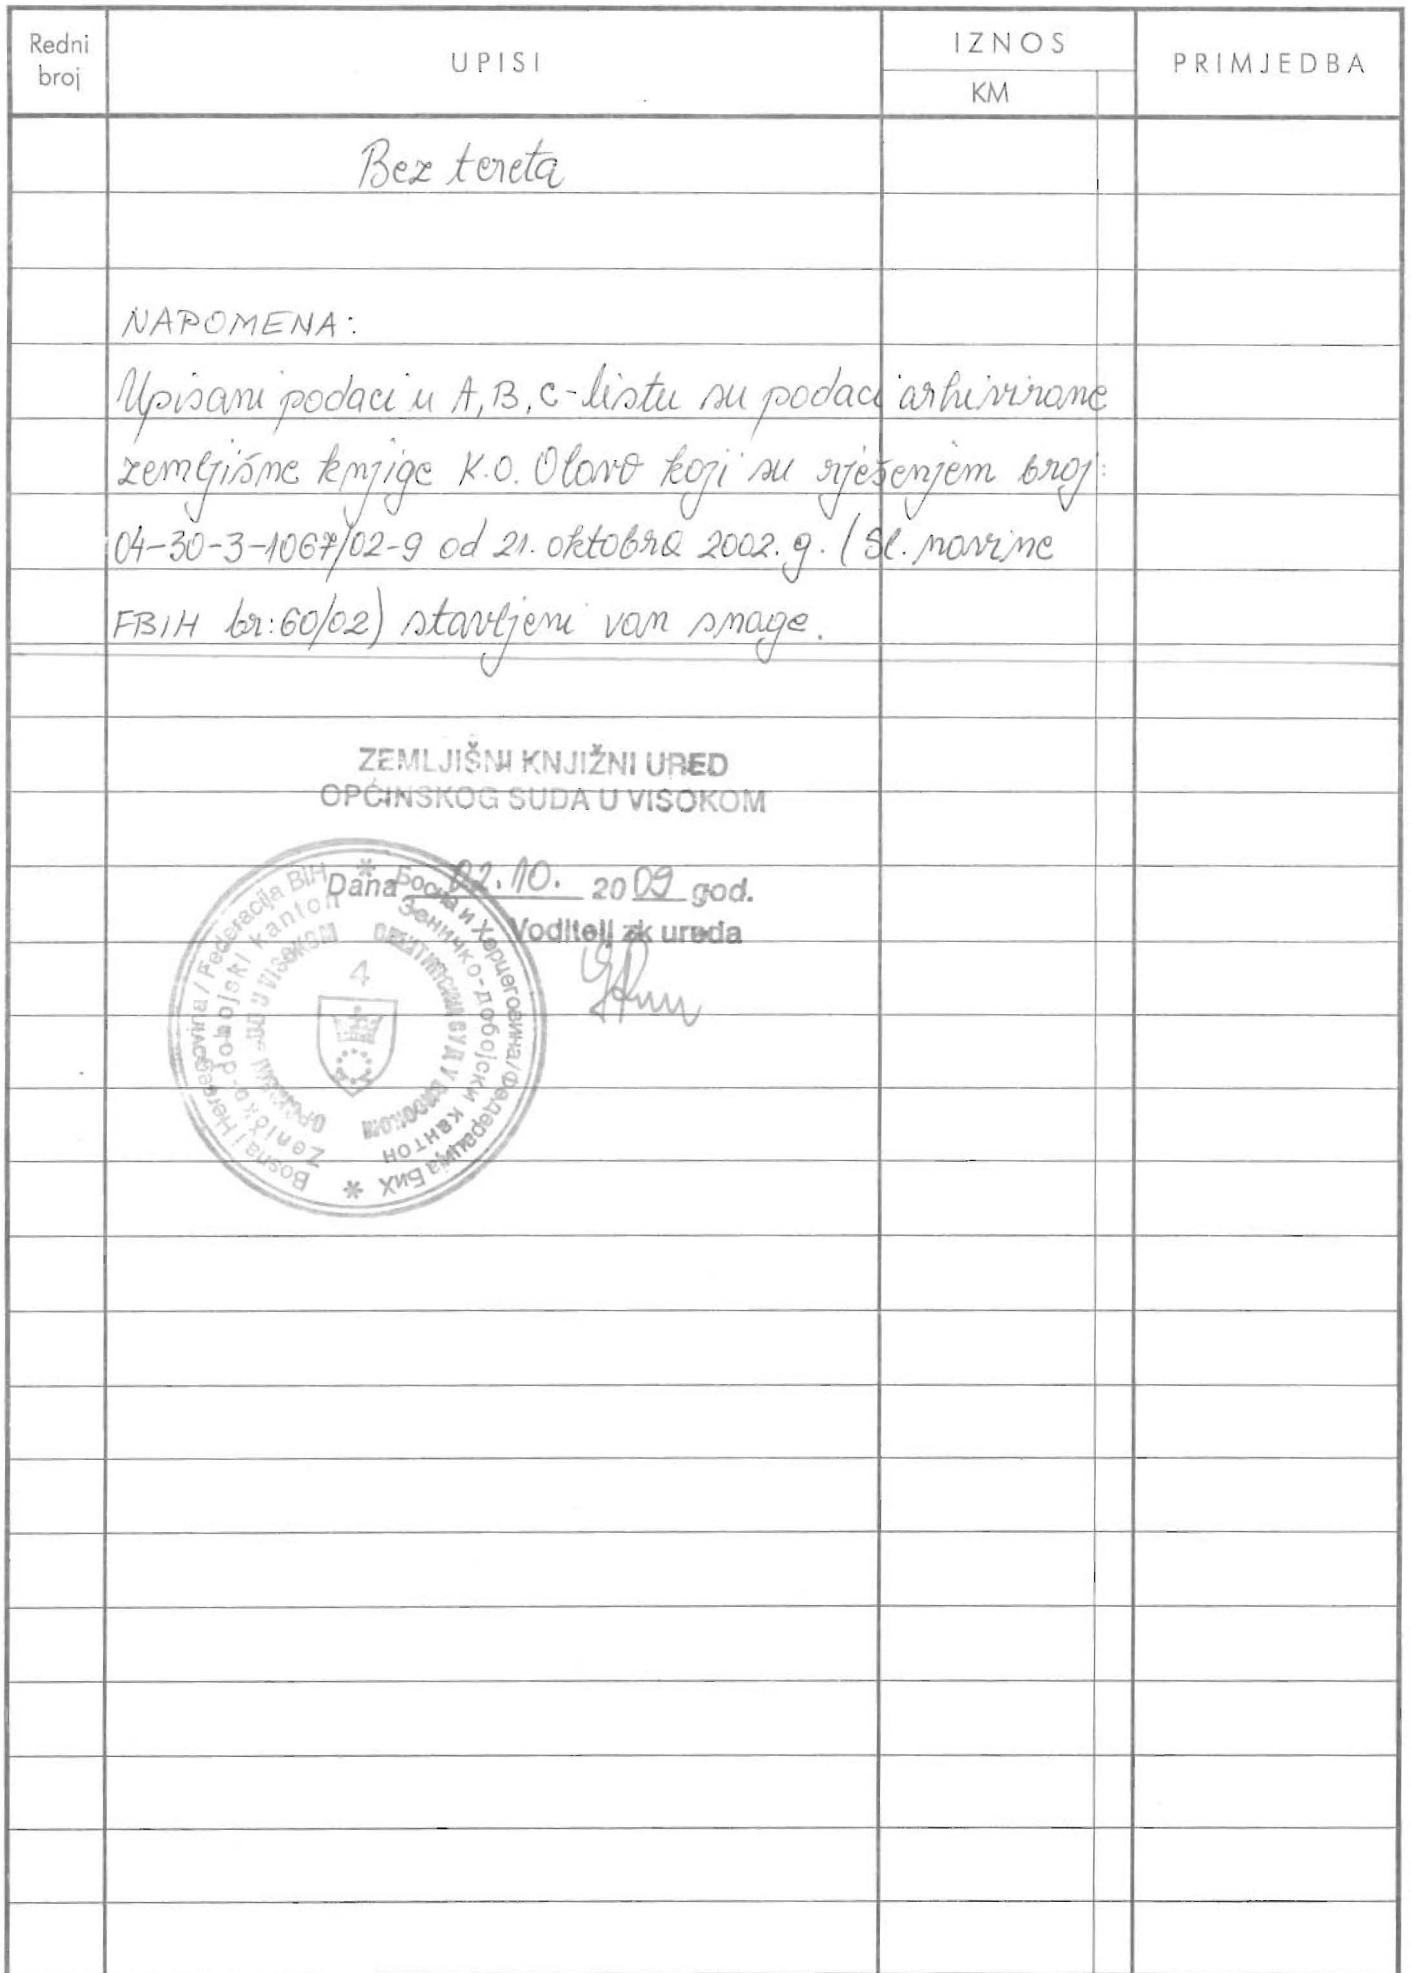 Redni broj
UPISI
IZNOS
KM
PRIMJEDBA
Bez tereta
NAPOMENA:
Upisani podaci u A, B, C-listu su podaci arhivirane
zemljišne knjige K.O. Olovo koji su rješenjem broj:
04-30-3-1067/02-9 od 21. oktobra 2002. g. (Sl. novine
FBIH br:60/02) stavljeni van snage.
ZEMLJIŠNI KNJIŽNI URED
OPĆINSKOG SUDA U VISOKOM
Dana 02.10. 2009 god.
Voditelj zk ureda
Bosna i Hercegovina / Federacija BiH
Босна и Херцеговина/Федерација БиХ
Zeničko-dobojski kanton
Зеничко-добојски кантон
4